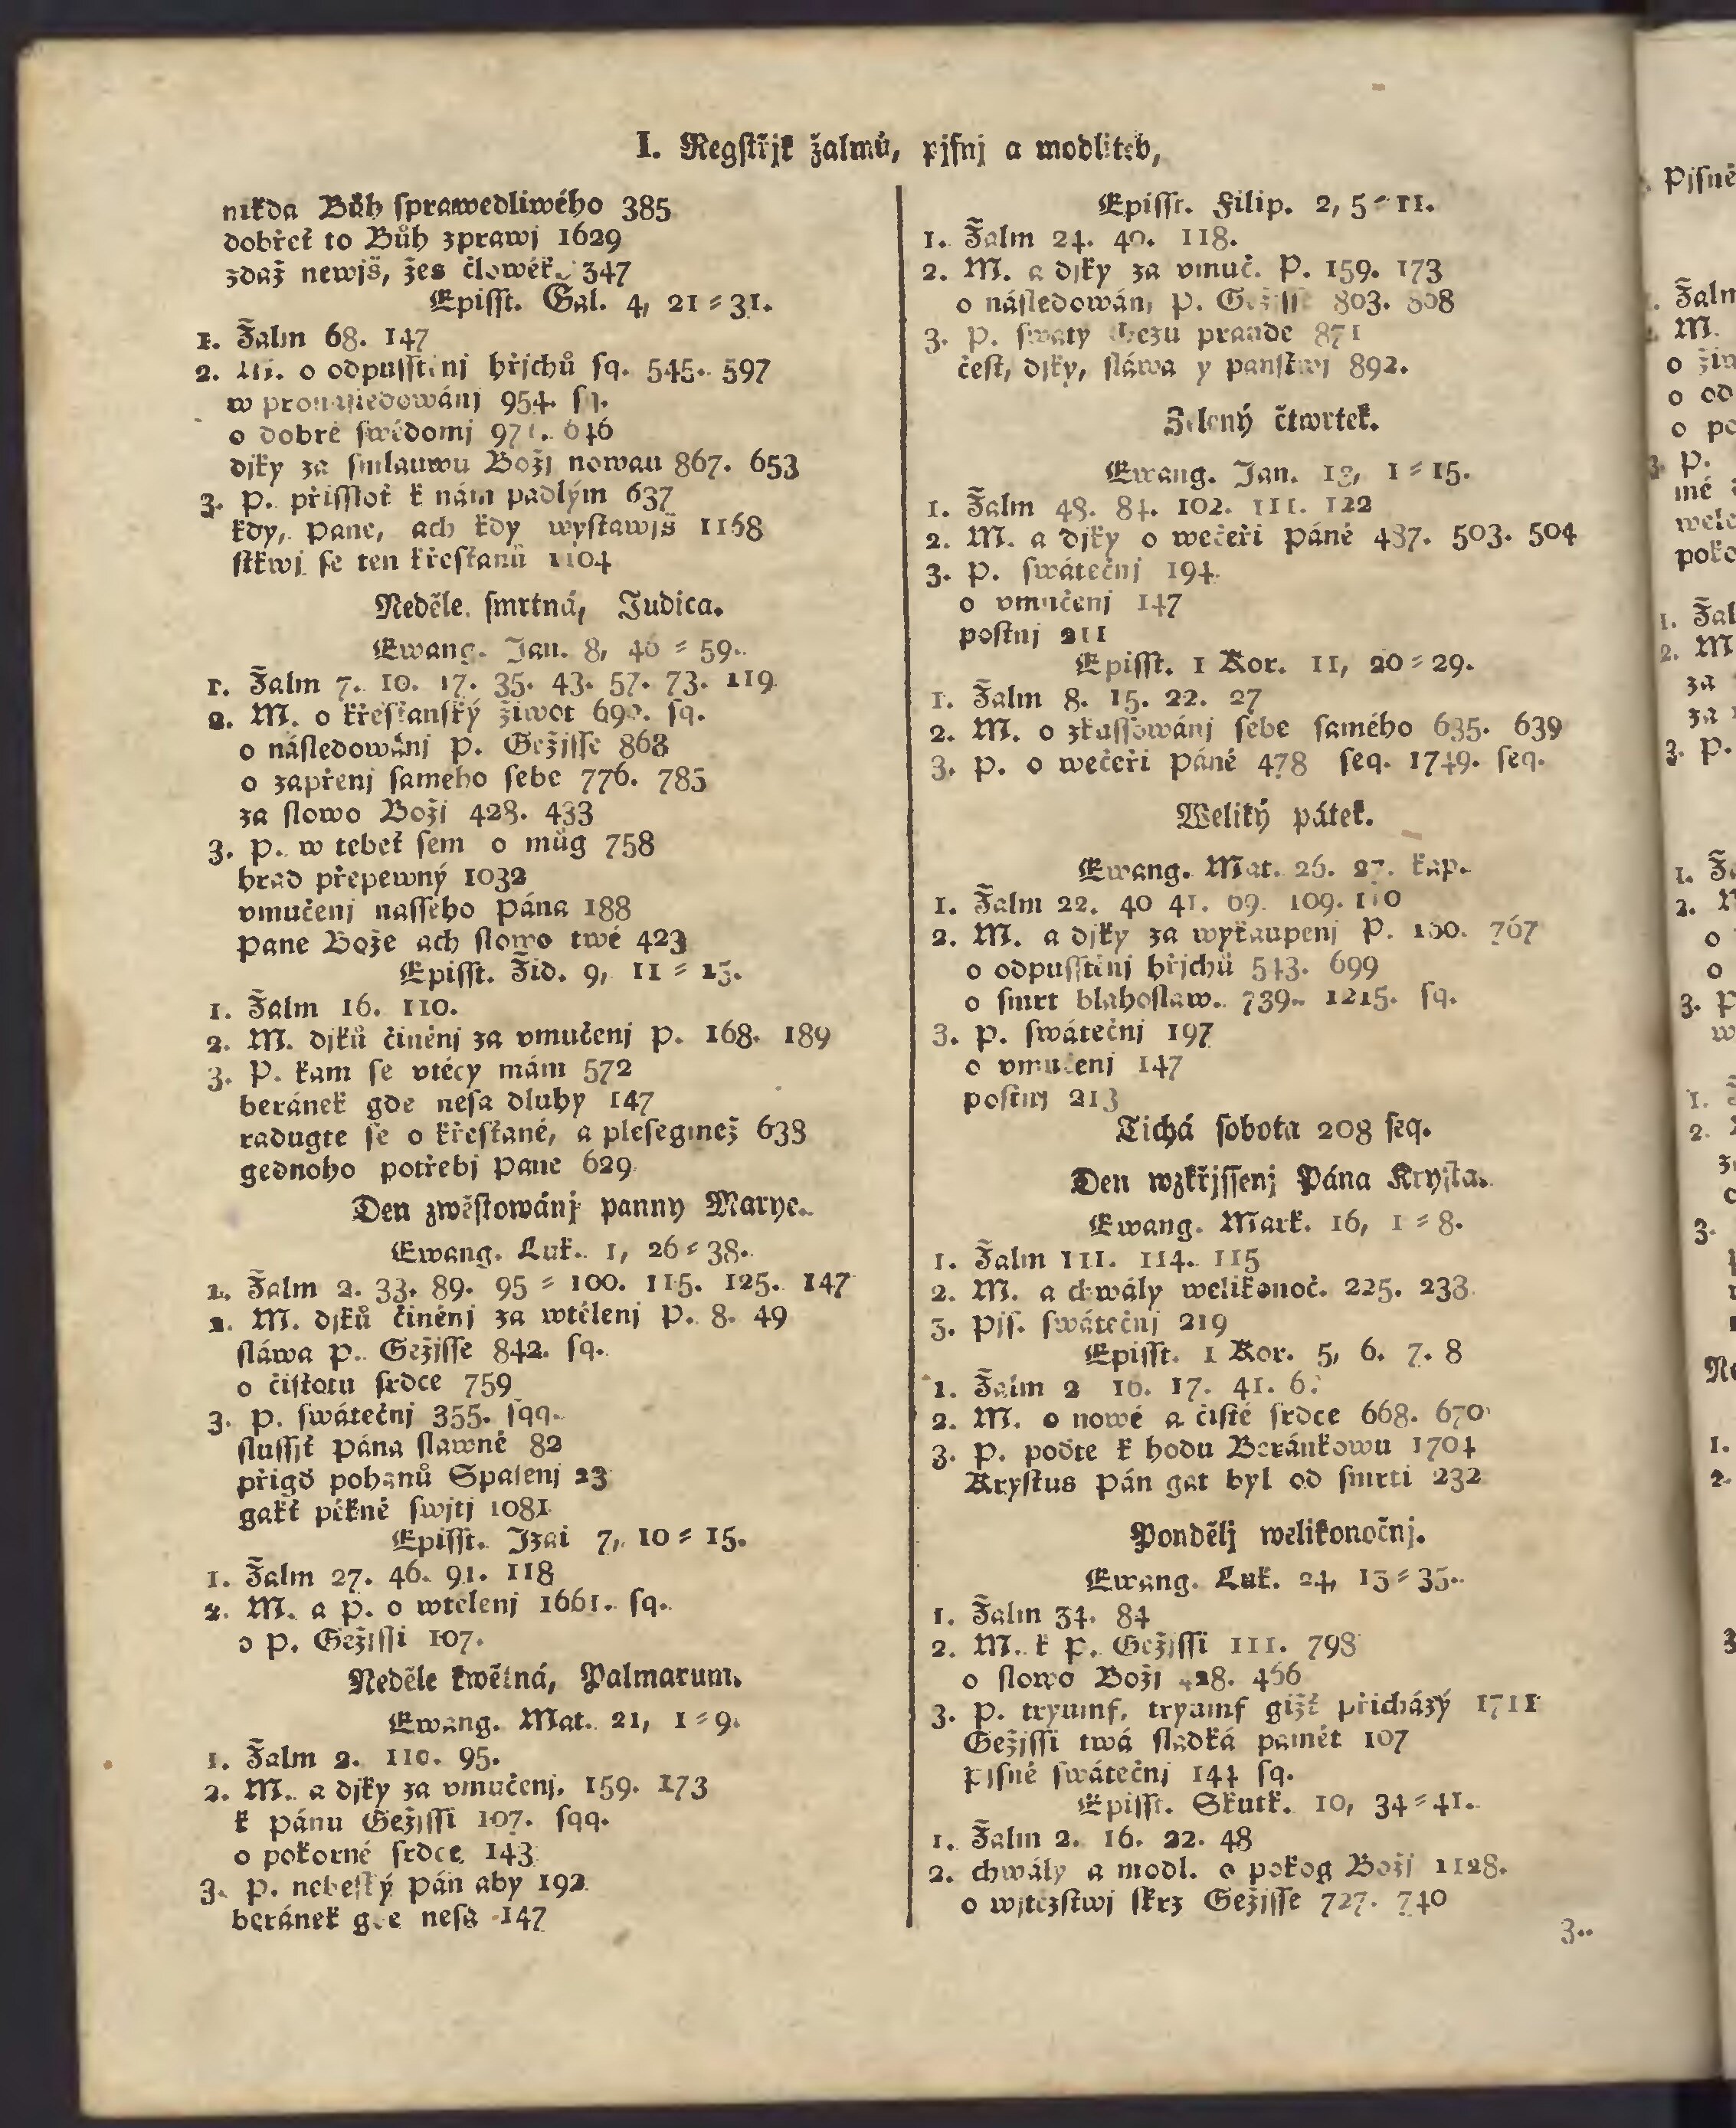 I. Regſtřjk žalmů, pjſnj a modliteb,
nikda Bůh ſprawedliwého 385
dobřeť to Bůh zprawj 1629
zdaž newjš, žes člowěk 347
Epiſſt. Gal. 4, 21 = 31.
1. Žalm 68. 147
2. M. o odpuſſtěnj hřjchů ſq. 545. 597
w pronáſledowánj 954. ſq.
o dobré ſwědomj 646
djky za ſmlauwu Božj nowau 867. 653
3. P. přiſſloť k nám padlým 637
kdy, Pane, ach kdy wyſtawjš 1168
ſtkwj ſe ten křeſťanů 1104
Neděle ſmrtná, Judica.
Ewang. Jan. 8, 46 = 59.
1. Žalm 7. 10. 17. 35. 43. 57. 73. 119
2. M. o křeſťanſký žiwot 690. ſq.
o náſledowánj P. Gežjſſe 868
o zapřenj ſameho ſebe 776. 785
za ſlowo Božj 428. 433
3. P. w tebeť ſem o můg 758
hrad přepewný 1032
vmučenj naſſeho Pána 188
Pane Bože ach ſlowo twé 423
Epiſſt. Žid. 9, 11 = 15.
1. Žalm 16. 110.
2. M. djků činěnj za vmučenj P. 168. 189
3. P. kam ſe vtécy mám 572
beránek gde neſa dluhy 147
radugte ſe o křeſťané, a pleſegmež 638
gednoho potřebj Pane 629
Den zwěſtowánj panny Marye.
Ewang. Luk. 1, 26 = 38.
1. Žalm 2. 33. 89. 95 = 100. 115. 125. 147
2. M. djků činěnj za wtělenj P. 8. 49
ſláwa P. Gežjſſe 842. ſq.
o čiſtotu ſrdce 759
3. P. ſwátečnj 355. ſqq.
ſluſſjť Pána ſlawně 82
přigď pohanů Spaſenj 23
gakť pěkně ſwjtj 1081
Epiſſt. Jzai 7, 10 = 15.
1. Žalm 27. 46. 91. 118
2. M. a P. o wtělenj 1661. ſq.
o P. Gežjſſi 107.
Neděle kwětná, Palmarum.
Ewang. Mat. 21, 1 = 9.
1. Žalm 2. 110. 95.
2. M. a djky za vmučenj. 159. 173
k Pánu Gežjſſi 107. ſqq.
o pokorné ſrdce 143
3. P. nebeſký Pán aby 192
beránek gde neſa 147
Epiſſt. Filip. 2, 5 = 11.
1. Žalm 24. 40. 118.
2. M. a djky za vmuč. P. 159. 173
o náſledowánj P. Gežjſſe 803. 868
3. P. ſwatý Gezu prawde 871
čeſt, djky, ſláwa y panſtwj 892.
Zelený čtwrtek.
Ewang. Jan. 13, 1 = 15.
1. Žalm 48. 84. 102. 111. 122
2. M. a djky o wečeři Páně 487. 503. 504
3. P. ſwátečnj 194
o vmučenj 147
poſtnj 211
Epiſſt. 1 Kor. 11, 20 = 29.
1. Žalm 8. 15. 22. 27
2. M. o zkuſſowánj ſebe ſamého 635. 639
3. P. o wečeři Páně 478 ſeq. 1749. ſeq.
Weliký pátek.
Ewang. Mat. 26. 27. kap.
1. Žalm 22. 40 41. 69. 109. 110
2. M. a djky za wykaupenj P. 767
o odpuſſtěnj hřjchů 543. 699
o ſmrt blahoſlaw. 739. 1215. ſq.
3. P. ſwátečnj 197
o vmučenj 147
poſtnj 213
Tichá ſobota 208 ſeq.
Den wzkřjſſenj Pána Kryſta.
Ewang. Mark. 16, 1 = 8.
1. Žalm 111. 114. 115
2. M. a chwály welikonoč. 225. 233
3. Pjſ. ſwátečnj 219
Epiſſt. 1 Kor. 5, 6. 7. 8
1. Žalm 2 16. 17. 41.
2. M. o nowé a čiſté ſrdce 668. 670
3. P. poďte k hodu Beránkowu 1704
Kryſtus Pán gat byl od ſmrti 232
Pondělj welikonočnj.
Ewang. Luk. 24, 13 = 35.
1. Žalm 34. 84
2. M. k P. Gežjſſi 111. 798
o ſlowo Božj 428. 456
3. P. tryumf, tryumf gižť přicházý 1711
Gežjſſi twá ſladká pamět 107
pjſně ſwátečnj 144 ſq.
Epiſſt. Skutk. 10, 34 = 41.
1. Žalm 2. 16. 22. 48
2. chwály a modl. o pokog Božj 1128.
o wjtězſtwj ſkrz Gežjſſe 727. 740
3.